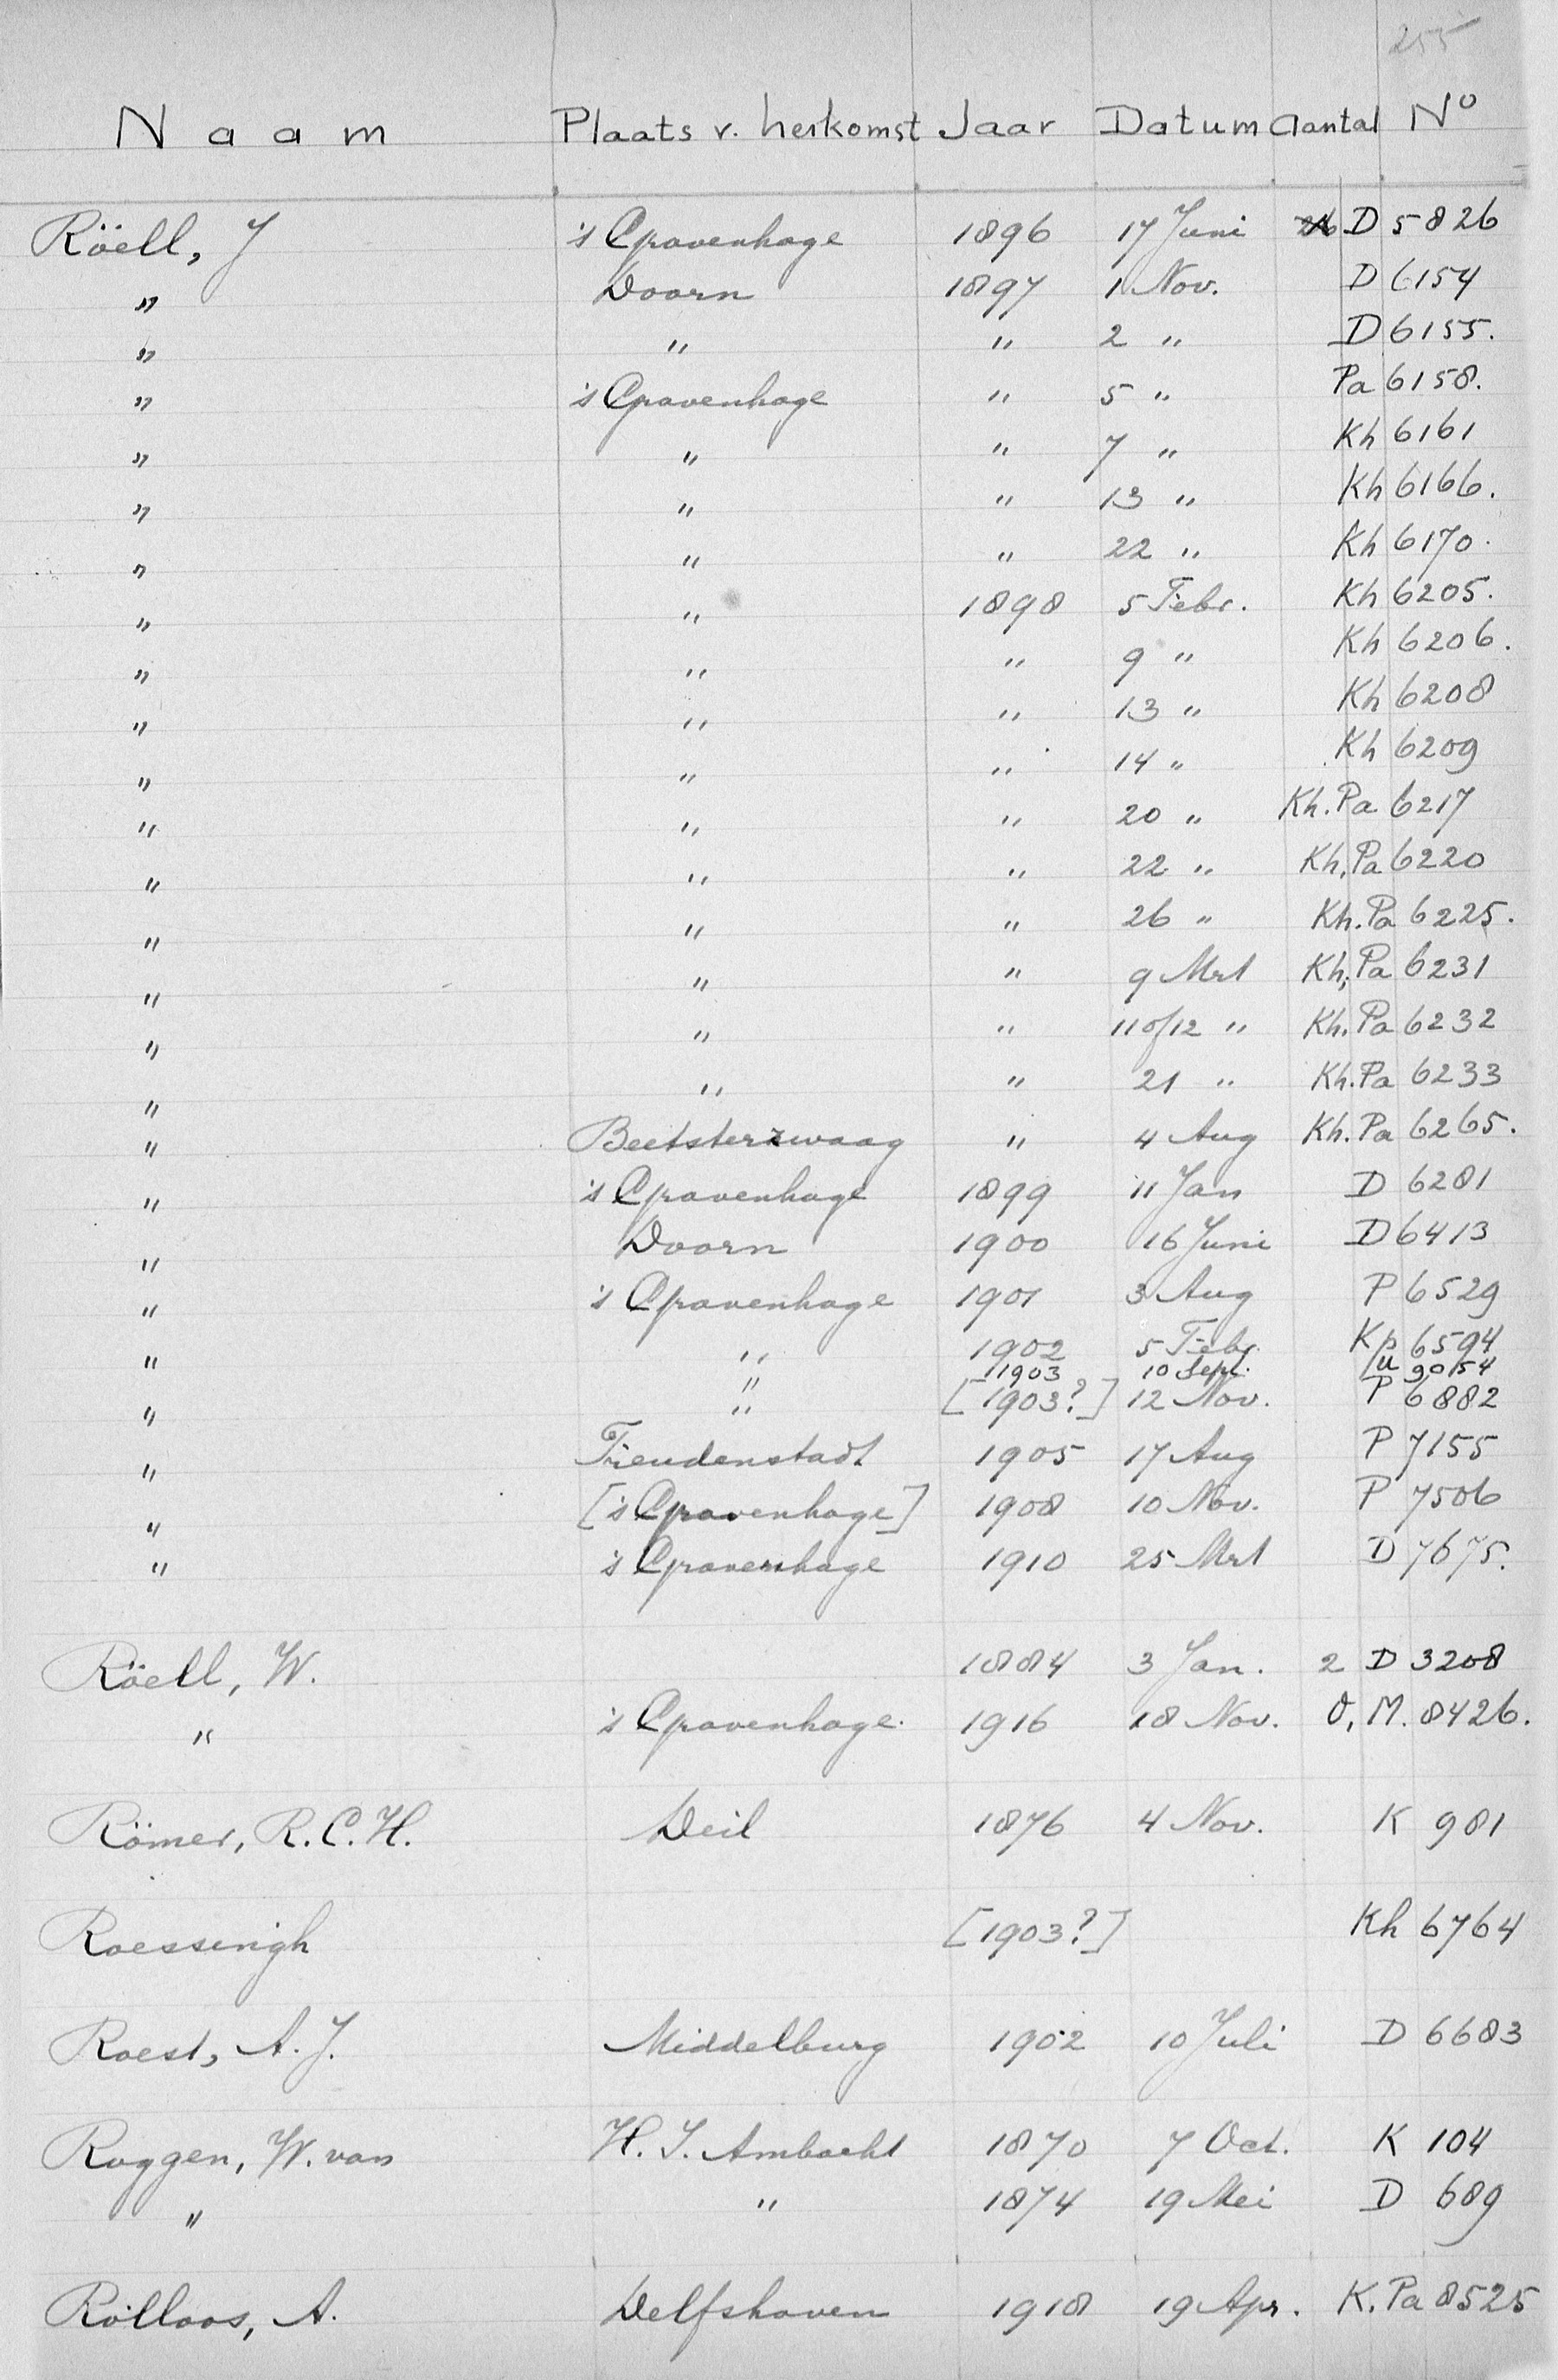 255
Naam Plaats v. herkomst Jaar Datum Aantal No
Röell, J 's Gravenhage 1896 17 Juni D 5826
" Doorn 1897 1 Nov. D 6154
" " " 2 " D 6155.
" 's Gravenhage " 5 " Pa 6158.
" " " 7 " Kh 6161
" " " 13 " Kh 6166.
" " " 22 " Kh 6170.
" " 1898 5 Febr. Kh 6205.
" " " 9 " Kh 6206.
" " " 13 " Kh 6208
" " " 14 " Kh 6209
" " " 20 " Kh. Pa 6217
" " " 22 " Kh, Pa 6220
" " " 26 " Kh. Pa 6225.
" " " 9 Mrt Kh, Pa 6231
" " " 11 of 12 " Kh. Pa 6232
" " " 21 " Kh. Pa 6233
" Beetsterzwaag " 4 Aug Kh. Pa 6265.
" 's Gravenhage 1899 11 Jan D 6281
" Doorn 1900 16 Juni D 6413
" 's Gravenhage 1901 3 Aug P 6529
" " 1902 5 Febr. Kp 6594
" 1903 10 Sept. 90154
" " [1903?] 12 Nov. P 6882
" Freudenstadt 1905 17 Aug P 7155
" ['s Gravenhage] 1908 10 Nov. P 7506
" 's Gravenhage 1910 25 Mrt D 7675.
Röell, W. 1884 3 Jan. 2 D 3208
" 's Gravenhage. 1916 18 Nov. O, M. 8426.
Römer, R.C.H. Deil 1876 4 Nov. K 981
Roessingh [1903?] Kh 6764
Roest, A.J. Middelburg 1902 10 Juli D 6683
Roggen, W. van H. I. Ambacht 1870 7 Oct. K 104
" " 1874 19 Mei D 689
Rolloos, A. Delfshaven 1918 19 Apr. K. Pa 8525